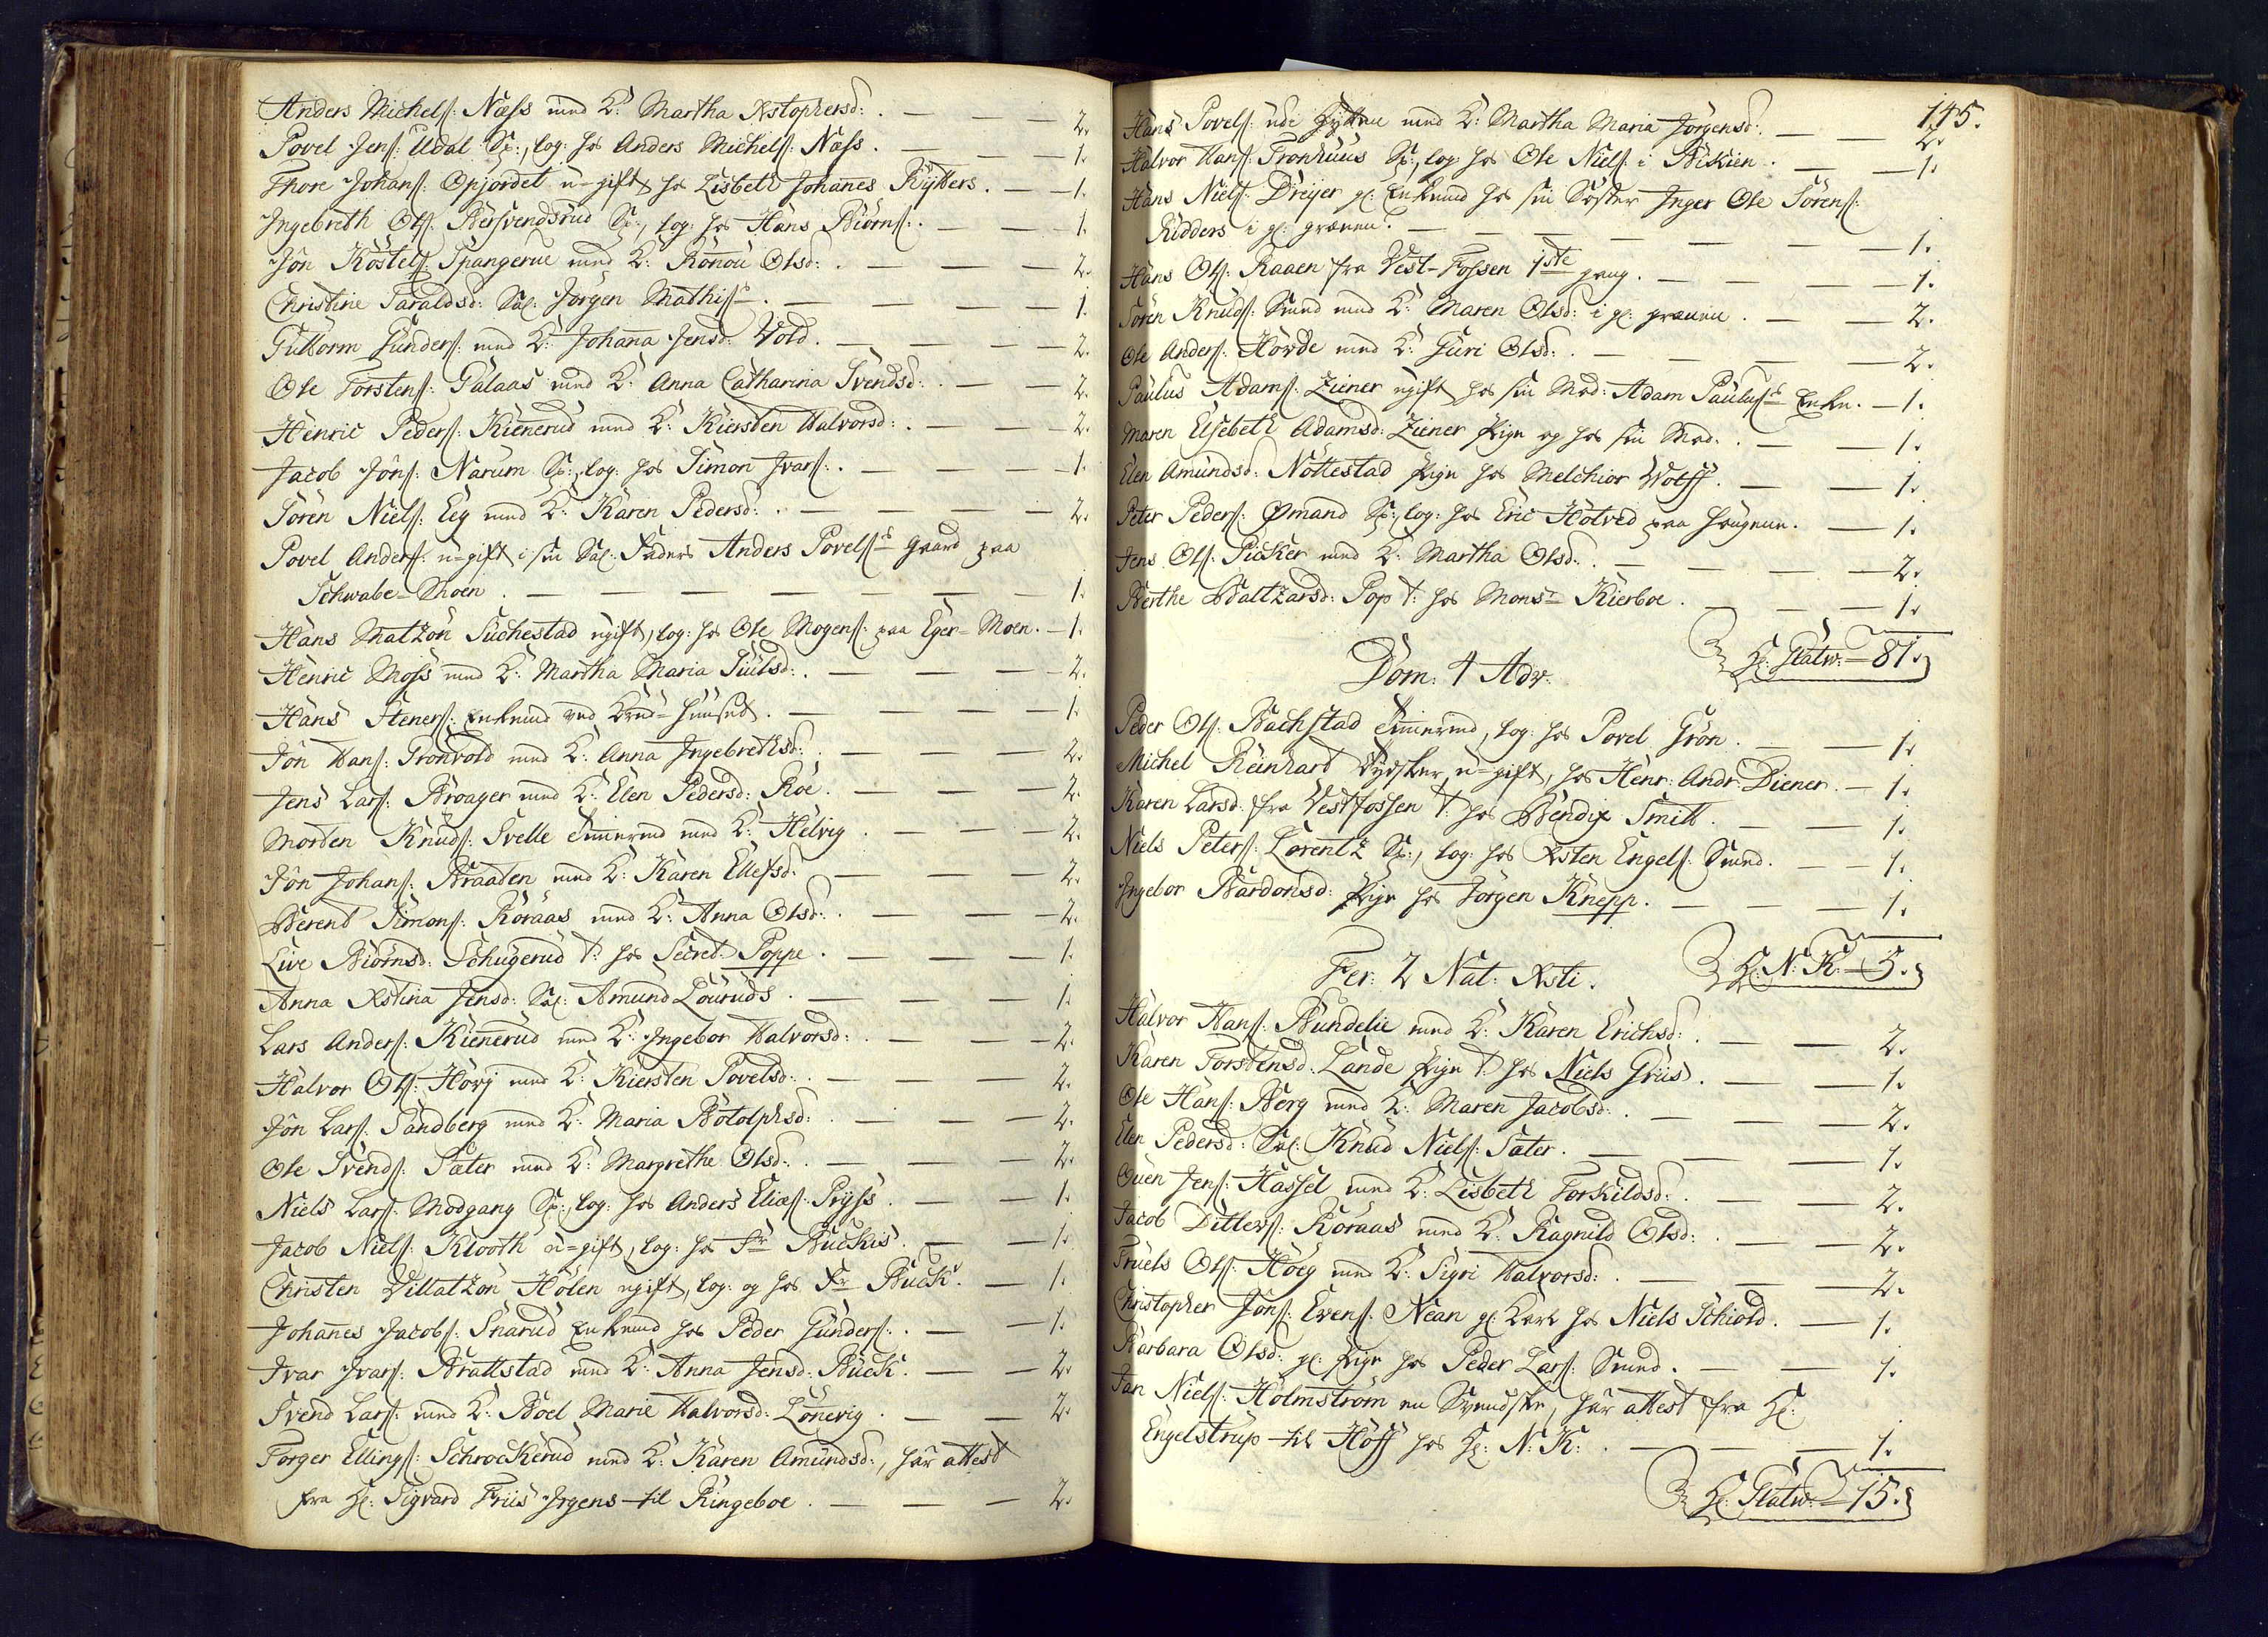 Anders Michels: Næss med K: Martha Xstophersd: . — — — 2.
Povel Jens: Udal Sp:, log: hos Anders Michels: Næss . — — — 1.
Thore Johans: Opjordet u-gift, hos Lisbeth Johannes Rytters . — — 1.
Ingebreth Ols: Bersvendsrud Sp:, log: hos Hans Biörns: . — — — 1.
Jön Köstels: Spangerue med K: Rönnou Olsd: . — — — 2.
Christine Taraldsd: Sal: Jörgen Mathiss . — — — 1.
Guttorm Gunders: med K: Johanna Jensd: Vold . — — — 2.
Ole Torstens: Palaas med K: Anna Catharina Svendsd: . — — 2.
Henric Peders: Kiennerud med K: Kiersten Halvorsd: . — — 2.
Jacob Jöns: Narum Sp:, log: hos Simon Ivars: . — — — 1.
Sören Niels: Eeg med K: Karen Pedersd: . — — — 2.
Povel Anders: u-gift i sin Sal: Faders Anders Povelss Gaard paa
Schwabe-Moen . — — — — — — 1.
Hans Matzön Suchestad ugift, log: hos Ole Mogens: paa Eger-Moen . — 1.
Henric Moss med K: Martha Maria Siulsd: . — — — 2.
Hans Steners: Enkemd ved Krud-Huuset . — — — 1.
Jön Hans: Grönvold med K: Anna Ingebrethsd: . — — — 2.
Jens Lars: Broager med K: Elen Pedersd: Roe . — — — 2.
Morten Knuds: Svelle Timmermd med K: Helvig . — — — 2.
Jön Johans: Braaten med K: Karen Ellefsd: . — — — 2.
Berent Simons: Roraas med K: Anna Olsd: . — — — 2.
Live Biörnsd: Schugerud t: hos Secret: Poppe . — — — 1.
Anna Xstina Jensd: Sal: Amund Louruds . — — — 1.
Lars Anders: Kiennerud med K: Ingebor Halvorsd: . — — — 2.
Halvor Ols: Hovj med K: Kiersten Povelsd: . — — — 2.
Jön Lars: Sandberg med K: Maria Botolphsd: . — — — 2.
Ole Svends: Sæter med K: Margrethe Olsd: . — — — 2.
Niels Lars: Modgang Sp:, log: hos Anders Elias: Pryss . — — 1.
Jacob Niels: Klooth u-gift, log: hos Sr Buckis . — — 1.
Christen Villatzön Holen ugift, log: og hos Sr Buck . — 1.
Johannes Jacobs: Snarud Enkemd hos Peder Gunders: . — — 1.
Ivar Ivars: Brattstad med K: Anna Jensd: Buck . — — 2.
Svend Lars: med K: Boel Marie Halvorsd: Lönevig . — — 2.
Torger Ellings: Schrockerud med K: Karen Amundsd:, har attest
fra Hr: Sigvard Friis Irgens til Ringeboe . — — — 2.
145.
Hans Povels: ude Hytten med K: Martha Maria Jörgensd: . — — 2.
Halvor Hans: Tronhuus Sp:, log: hos Ole Niels: i — — 1.
Hans Niels: Dreyer gl: Enkemd hos sin Söster Inger Ole Sörens:
Ridders i gl: gruven . — — — — — — 1.
Hans Ols: Raaen fra Vest-Fossen 1ste gang . — — — 1.
Sören Knuds: Smed med K: Maren Olsd: i gl: gruven . — — 2.
Ole Anders: Hovde med K: Guri Olsd: . — — — 2.
Paulus Adams: Ziener ugift hos sin Mod: Adam Pauluss Enke . — 1.
Maren Elsebeth Adamsd: Ziener Pige og hos sin Mod: . — — 1.
Elen Amundsd: Nöttestad Pige hos Melchior Wolff . — — 1.
Peter Peders: Ømand Sp:, log: hos Eric Holved paa Haugene . — 1.
Jens Ols: Picker med K: Martha Olsd: . — — — 2.
Berthe Baltzarsd: Pop t: hos Monsr Kierboe . — — — 1.
Hr: Statw: — 81.
Dom: 4 Adv:
Peder Ols: Bachstad Timmermd, log: hos Povel Grön . — — 1.
Michel Reinhart Tydsker, u-gift, hos Henr: Andr: Diener . — 1.
Karen Larsd: fra Vestfossen t: hos Bendix Smitt . — — 1.
Niels Peters: Lorentz Sp:, log: hos Xsten Engels: Smed . — — 1.
Ingebor Bardonsd: Pige hos Jörgen Knepp . — — — 1.
Hr: N: K: — 5.
Fer: 2 Nat: Xsti.
Halvor Hans: Bundelie med K: Karen Erichsd: . — — 2.
Karen Torstensd: Lande Pige t: hos Niels Griis . — — 1.
Ole Hans: Berg med K: Maren Jacobsd: . — — 2.
Elen Pedersd: Sal: Knud Niels: Sæter . — — — 1.
Ouen Jens: Hassel med K: Lisbeth Torkildsd: . — — 2.
Jacob Ditlevs: Roraas med K: Ragnild Olsd: . — — 2.
Truels Ols: Hoeg med K: Sigri Halvorsd: . — — 2.
Christopher Jöns: Evens: Nean gl: Karl hos Niels Schiold . — 1.
Barbara Olsd: gl: Pige hos Peder Lars: Smed . — — 1.
Jan Niels: Holmström en Svendsker, har attest fra Hr:
Engelstrup til Hoff hos Hr: N: K: . — — — 1.
Hr: Statw: — 15.